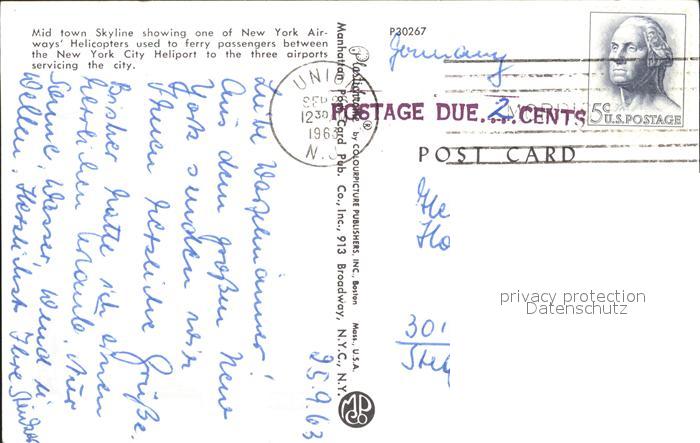 Mid town Skyline showing one of New York Air-
ways' Helicopters used to ferry passengers between
the New York City Heliport to the three airports
servicing the city.
P30267
Germany
UNION
SEP
12 30
1963
N. J.
POSTAGE DUE...2...CENTS
5¢
U.S. POSTAGE
POST CARD
Plastichrome® by COLOURPICTURE PUBLISHERS, INC. Boston Mass., U.S.A.
Manhattan Post Card Pub. Co., Inc., 913 Broadway, N.Y.C., N.Y.
MPC
25.9.63
Liebe
Aus dem großen New
York senden wir
Ihnen herzliche Grüße.
Bisher hatte ich einen
herrlichen Urlaub. Nur
Sonne, Wasser, Wind u.
Wellen. Herzlichst Ihre
He
Ho
301
privacy protection
Datenschutz